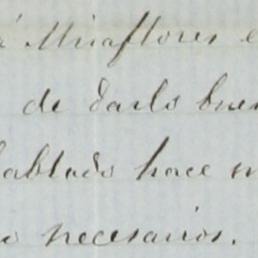 á Miraflores e
de darlo bue
hablado hace m
o necesarios.